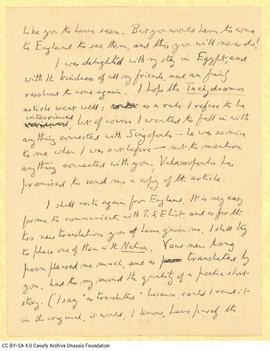 like you to have seen. But you would have to come
to England to see them, and this you will never do!
I was delighted with my stay in Egypt, and
with the kindness of all my friends, and am firmly
resolved to come again. I hope the Tachydromos
article went well; as a rule I refuse to be
interviewed but of course I wanted to fall in with
anything connected with Singopoulo – he was so nice
to me when I was out before – not to mention
anything connected with you. Valassopoulos has
promised to send me a copy of the article.
I shall write again from England. It is very easy
for me to communicate with T. S. Eliot, and as for the
two new translations you have given me, I shall try
to place one of them in the Nation. Your new long
poem pleased me much, and as translated by
you, had to my mind the quality of a poetic short
story. (I say 'as translated' because, could I read it
in the original, it would, I know, have passed the
CC BY-SA 4.0 Cavafy Archive Onassis Foundation